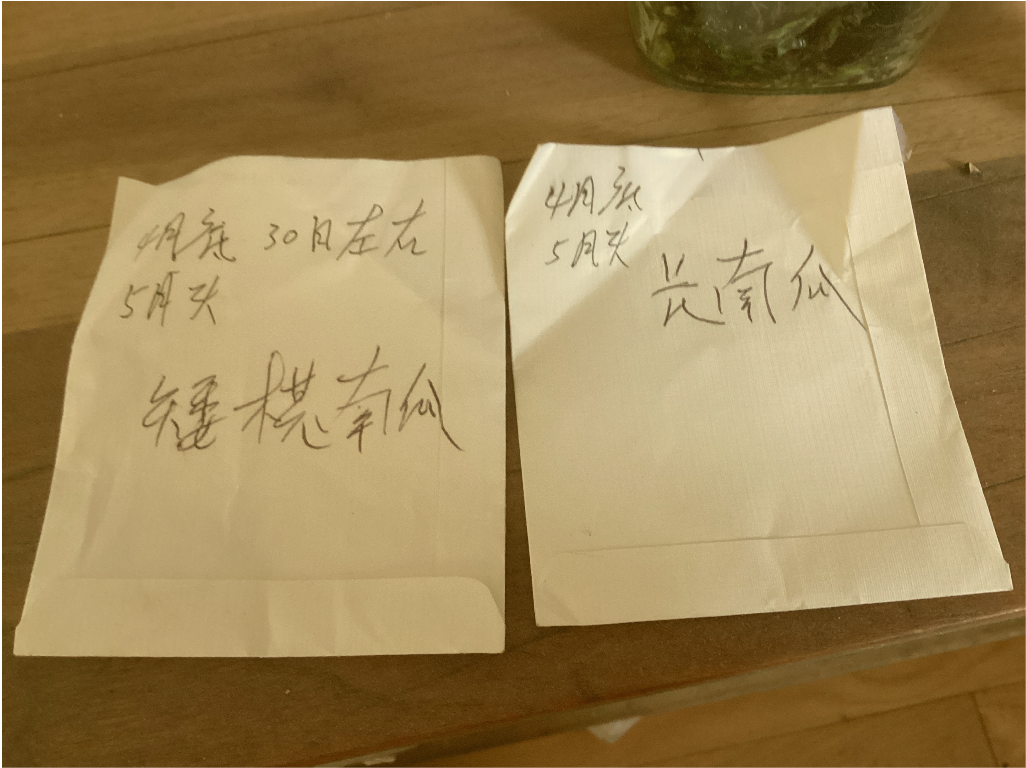 4月底 30日左右
5月头
矮 南瓜
4月底
5月头
长南瓜